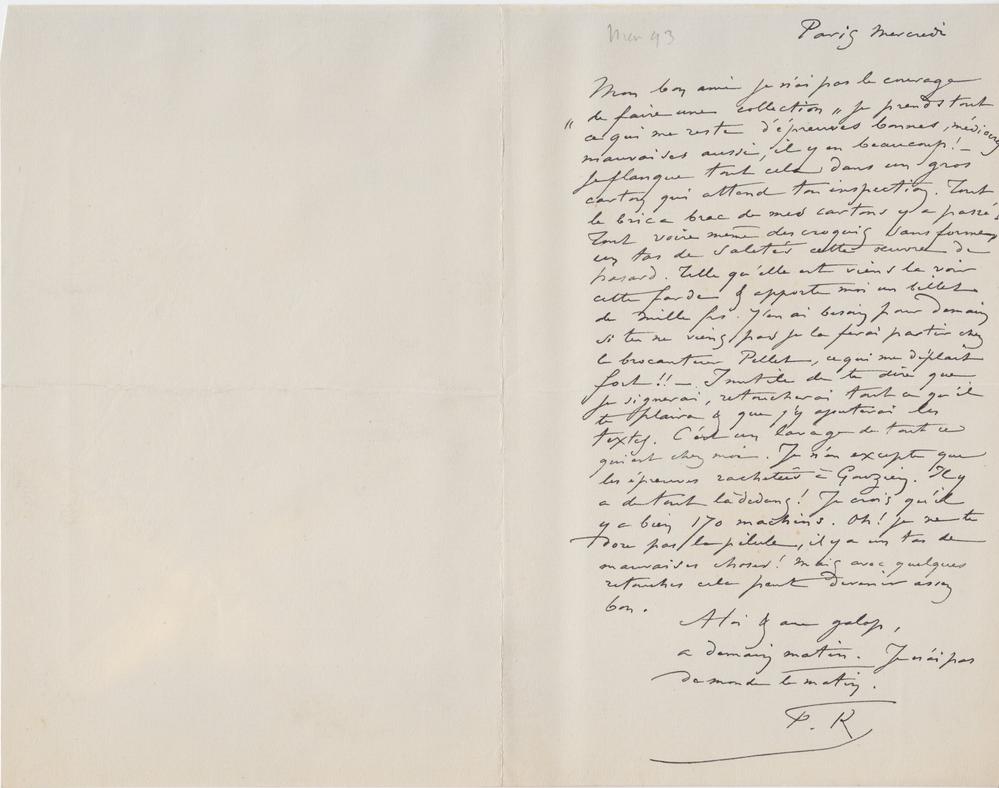 Mars 93
Paris Mercredi
Mon bon ami je n'ai pas le courage
de faire une collection " je prends tout
" ce qui me reste d'épreuves bonnes, médiocres
mauvaises aussi, il y en beaucoup! —
Je flanque tout cela dans un gros
carton qui attend ton inspection. Tout
le bric a brac de mes cartons y a passé
Tout voire même des croquis sans formes
un tas de saletés cette œuvre de
hasard. Telle qu'elle est viens la voir
cette farde & apporte moi un billet
de mille frs. J'en ai besoin pour demain
si tu ne viens pas je la ferai partir chez
le brocanteur Pellet, ce qui me déplait
fort!! — Inutile de te dire que
je signerai, retoucherai tout ce qu'il
te plaira & que j'y ajouterai les
textes. C'est un lavage de tout ce
qui est chez moi. Je n'en excepte que
les épreuves rachetées à Gouzien. Il y
a de tout là dedans! Je crois qu'il
y a bien 170 machins. Oh! je ne te
dore pas la pilule, il y a un tas de
mauvaises choses! Mais avec quelques
retouches cela peut devenir assez
bon.
A toi & au galop,
a demain matin. Je n'ai pas
de monde le matin.
P. R